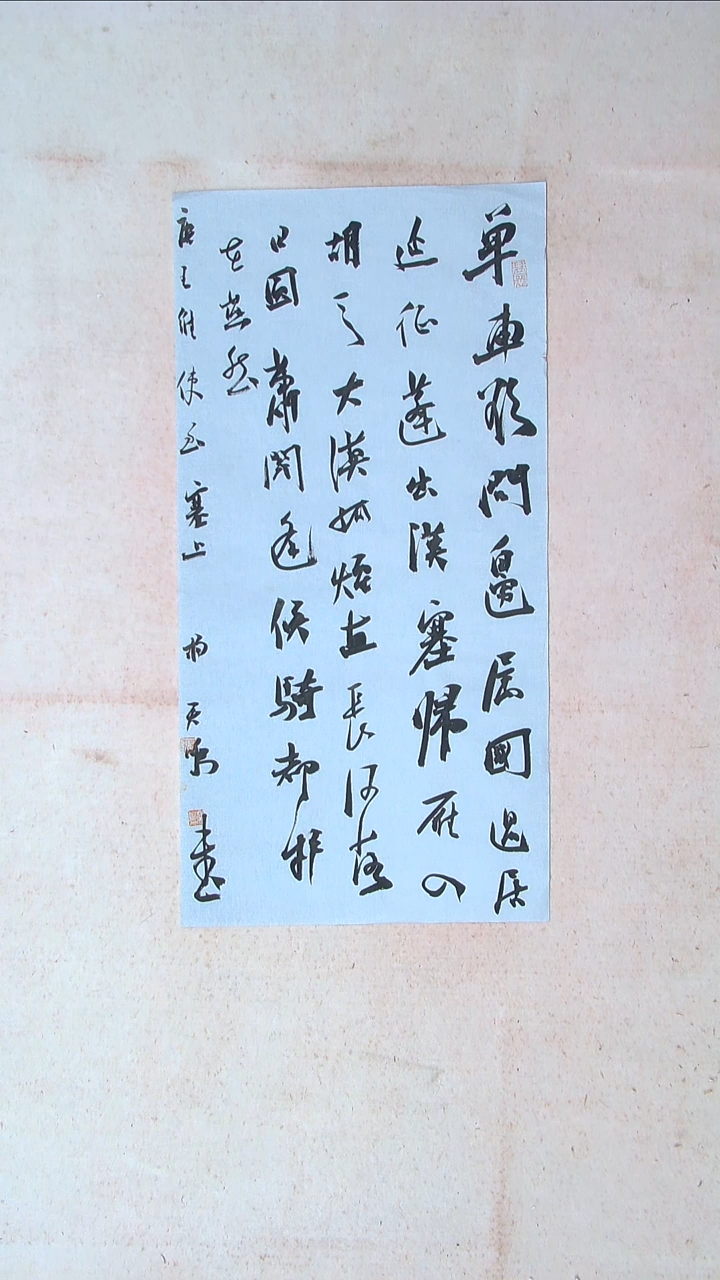 單車欲問邊屬國過居
延征蓬出漢塞歸雁入
胡天大漠孤煙直長河落
日圓蕭關逢候騎都護
在燕然
唐王維使至塞上 天 書